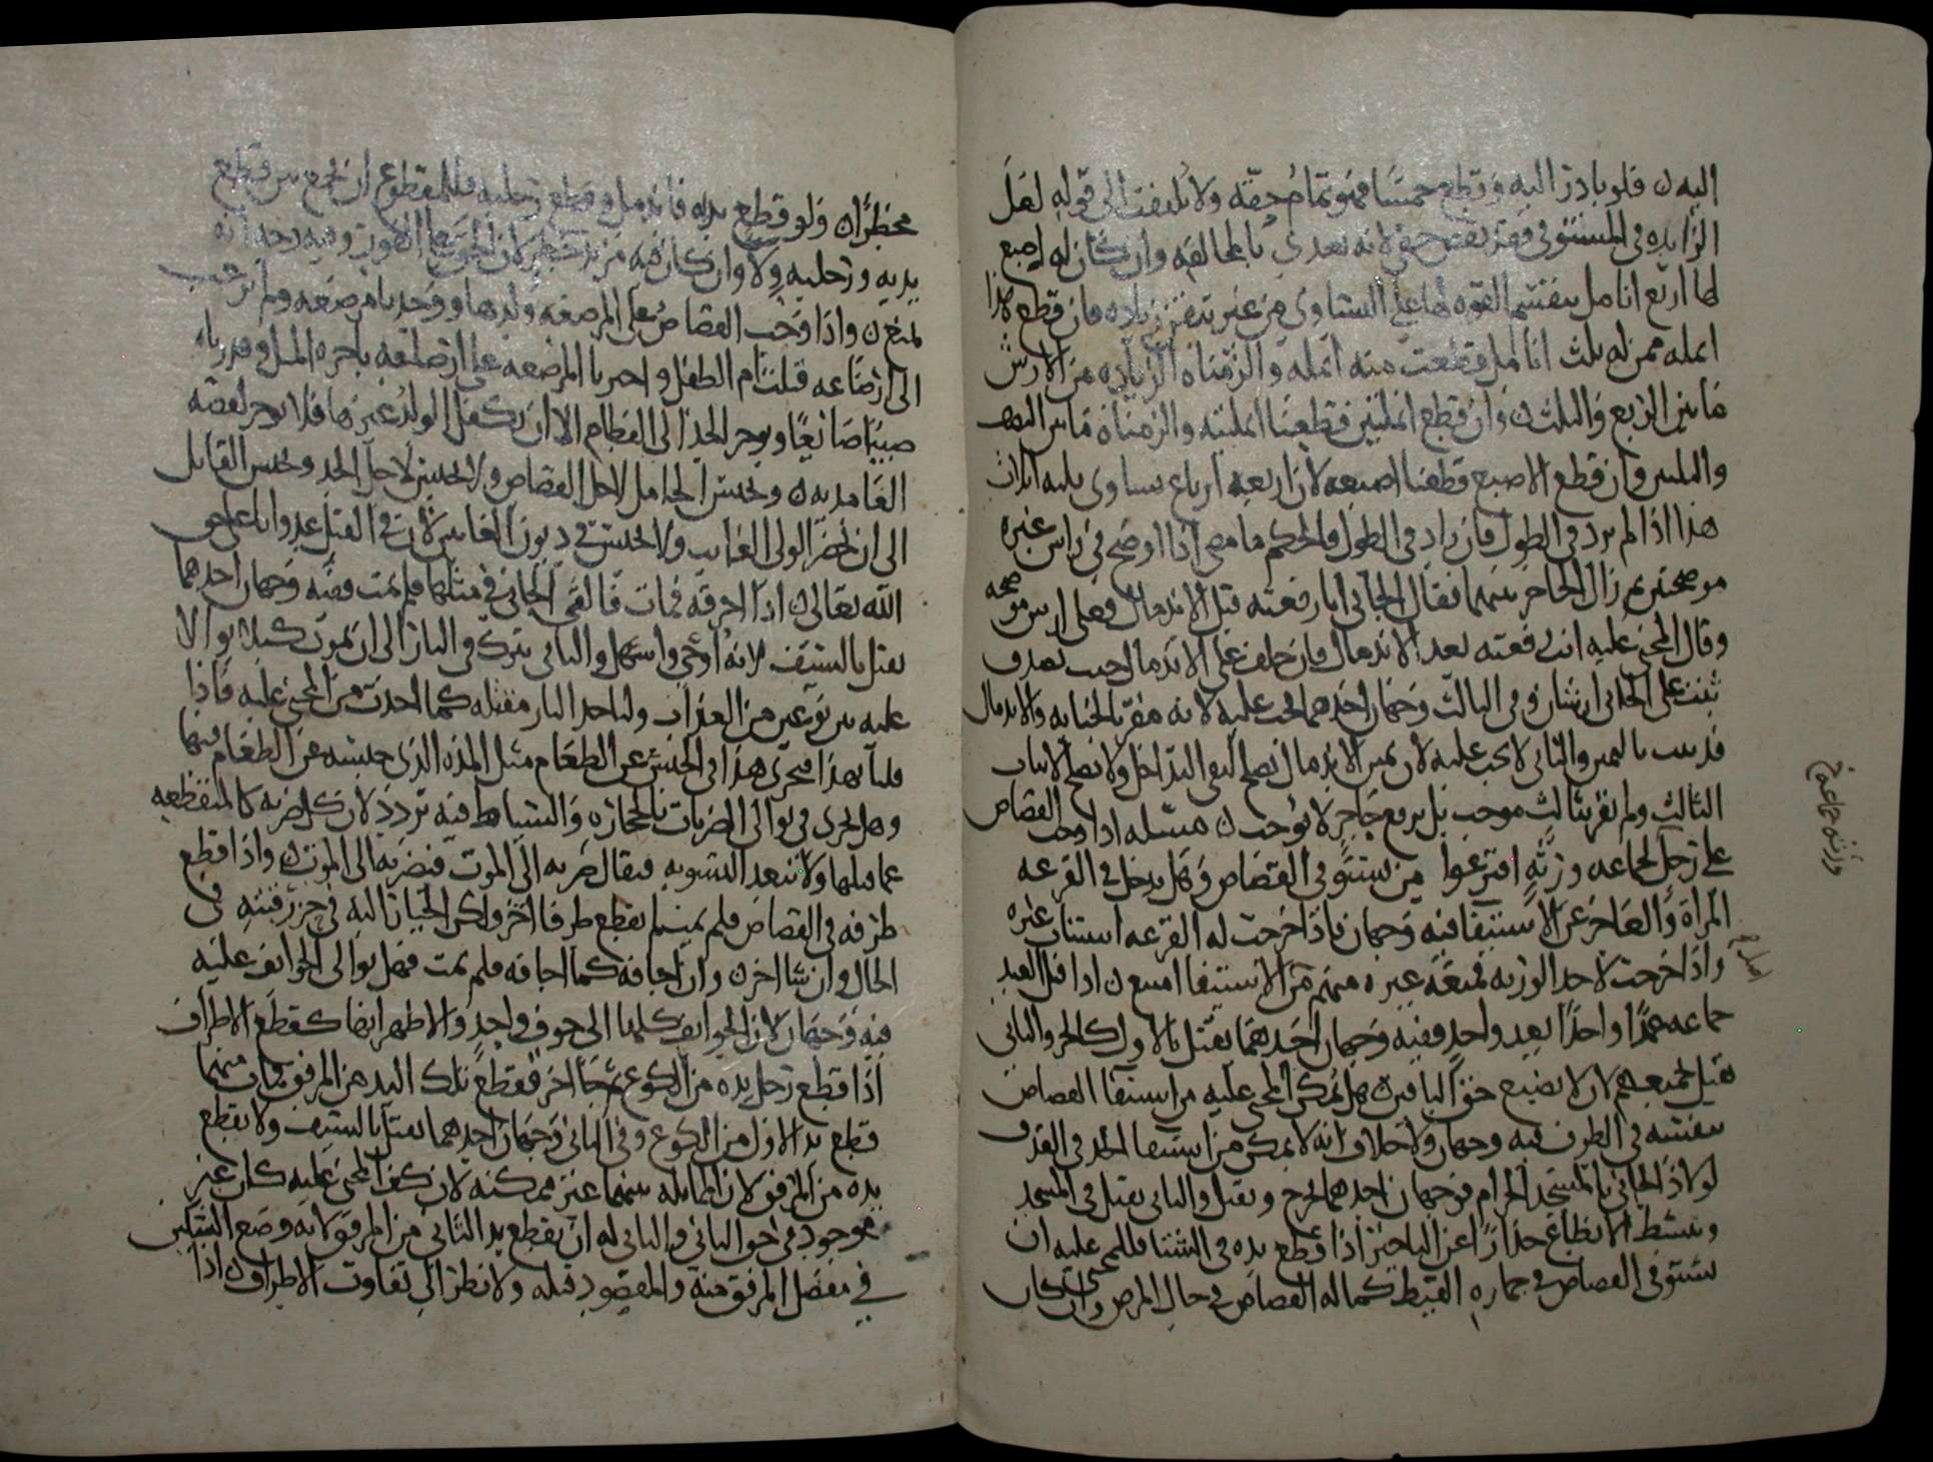 اليه ن فلو بادر اليه وقطع خمسا فهو تمام حقه ولا يلتفت الى قوله لعل
الزايده في المستوفى فقد نقص حقي لانه تعدى بالمخالفه وان كان له اصبع
لها اربع انامل بنفسها القوه لها على التساوي من غير تقدير زياده فان قطع هذا
انمله ممن له ثلث انامل قطعت منه انمله والزمناه الزياده من الارش
ما بين الربع والثلث ن وان قطع انملتين قطعنا انملتيه والزمناه ما بين النصف
والثلثين وان قطع الاصبع قطعنا اصبعه لان اربعه ارباع تساوي ثلثه اثلاث
هذا اذا لم يزد في الطول فان زاد في الطول فالحكم ما مضى اذا اوضح في راس غيره
موضحتين ثم زال الحاجز بينهما فقال الجاني انا رفعته قبل الاندمال فعلي ارش موضحه
وقال المجني عليه انت رفعته بعد الاندمال فان حلف على الاندمال حيث يصدق
ثبت على الجاني ارشان وفي الثالث وجهان احدهما يجب عليه لانه مقر بالجنايه والاندمال
قد ثبت باليمين والثاني لا يجب عليه لان يمين الاندمال تصلح لنفي التداخل ولا تصلح لاثبات
الثالث ولم نقر بثالث موجب بل برفع حاجز لا يوجب ن مسله اذا وجب القصاص
على رجل لجماعه ورثه اقترعوا من يستوفي القصاص وهل يدخل في القرعه
المراه والعاجز عن الاستيفا فيه وجهان فاذا خرجت له القرعه استناب غيره
واذا خرجت لاحد الورثه فمنعه غيره منهم من الاستيفا امتنع ن اذا قتل العبد
جماعه عمدا واحدا بعد واحد ففيه وجهان احدهما يقتل بالاول كالحر والثاني
يقتل بجميعهم لان لا يضيع حق الباقين ن هل يمكن المجني عليه من استيفا القصاص
بنفسه في الطرف فيه وجهان ولا خلاف انه لا يمكن من استيفا الحد في القذف
لو لاذ الجاني بالمسجد الحرام فوجهان احدهما يخرج ويقتل والثاني يقتل في المسجد
وتبسط الانطاع حذارا عن التلويث اذا قطع يده في الشتا فللمجني عليه ان
يستوفي القصاص في حماره القيظ كما له القصاص في حال المرض وان كان
ورثه جماعة
محظرا ن ولو قطع يديه فاندمل وقطع رجليه فللمقطوع ان يجمع بين قطع
يديه ورجليه ولا وان كان فيه مزيد خطر لان الحق على الفور وفيه وجه انه
يمنع ن واذا وجب القصاص على المرضعه ولدها ووجدنا مرضعه ولم ترغب
الى ارضاعه قتلنا ام الطفل واجبرنا المرضعه على ارضاعه باجره المثل وقد رباه
صبيا ضايعا ويوخر الحد الى الفطام الا ان تكفل الولد غيرها فلا يوخر لقصه
الغامديه ن وتحبس الحامل لاجل القصاص ولا تحبس لاجل الحد ويحبس القاتل
الى ان يحضر الولي الغايب ولا يحبس في ديون الغايبين لان في القتل عدوانا على حق
الله تعالى ن اذا احرقه فمات فالقي الجاني في مثلها فلم يمت ففيه وجهان احدهما
يقتل بالسيف لانه اوحى واسهل والثاني يترك في النار الى ان يموت كيلا يوالا
عليه بين نوعين من العذاب ولناخذ النار مقتله كما اخذت من المجني عليه فاذا
قلنا بهذا فيجري هذا في الحبس عن الطعام مثل المده الذي حبسه عن الطعام فيها
وهل يجري في توالي الضربات بالحجاره والسياط فيه تردد لان كل ضربه كالمنقطعه
عما قبلها ولا تبعد التسويه فيقال ضربه الى الموت فنضربه الى الموت ن واذا قطع
طرفه في القصاص فلم يمت لم يقطع طرفا اخر ولكن الخيار اليه في حز رقبته في
الحال وان شا اخر ن وان اجافه كما اجافه فلم يمت فهل يوالي الجوايف عليه
فيه وجهان لان الجوايف كلها الى جوف واحد والاظهر انها كقطع الاطراف
اذا قطع رجل يده من الكوع فجا اخر فقطع تلك اليد من المرفق ومات منهما
قطع يد الاول من الكوع وفي الثاني وجهان احدهما يقتل بالسيف ولا يقطع
يده من المرفق لان المماثله بينهما غير ممكنه لان كف المجني عليه كان غير
موجود في حق الثاني والثاني له ان يقطع يد الثاني من المرفق لانه وضع السكين
في مفصل المرفق منه والمقصود قتله ولا نظر الى تفاوت الاطراف ن اذا